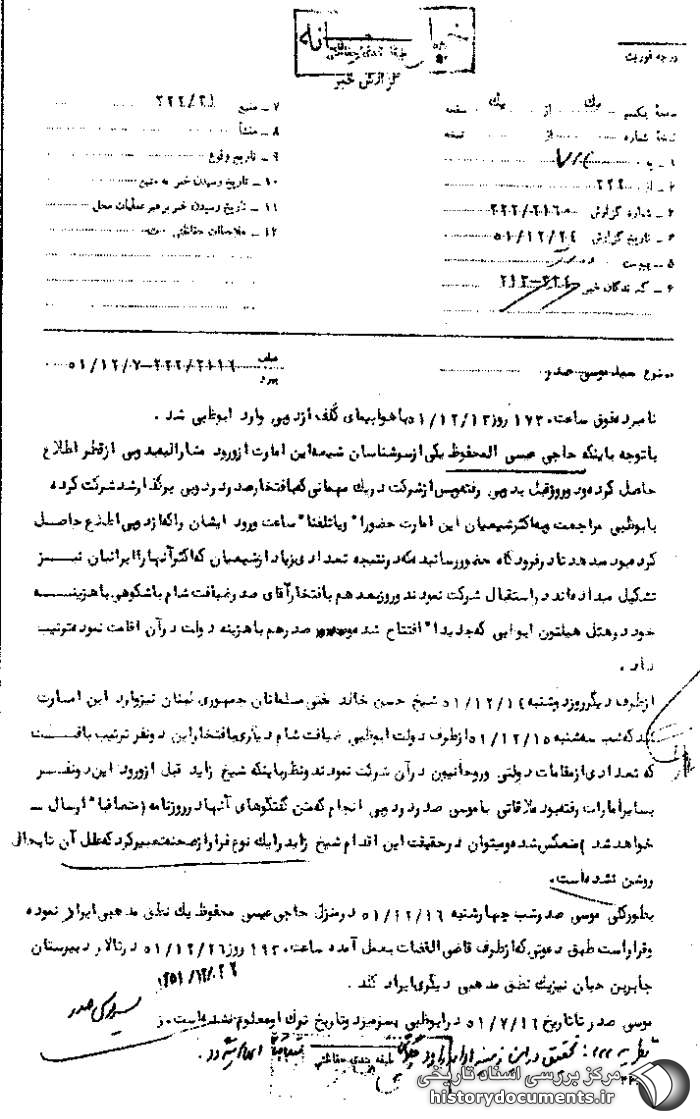 گزارش خبر
درجه فوریت
صفحه یکم از یک صفحه
نسخه شماره از نسخه
۱ ـ به
۲ ـ از ۲۲۲
۳ ـ شماره گزارش ۲۲۲/۲۱۶۰
۴ ـ تاریخ گزارش ۵۱/۱۲/۲۴
۵ ـ پیوست
۶ ـ گیرندگان خبر ۲۱۲ـ۲۲۴
۷ ـ منبع
۸ ـ منشأ
۹ ـ تاریخ وقوع
۱۰ ـ تاریخ رسیدن خبر به منبع
۱۱ ـ تاریخ رسیدن خبر به رهبر عملیات محل
۱۲ ـ ملاحظات حفاظتی
موضوع سید موسی صدر
عطف پیرو ۲۲۲/۲۱۱۶ ـ ۵۱/۱۲/۷
نامبرده فوق ساعت ۱۷۳۰ روز ۵۱/۱۲/۱۳ با هواپیمای گلف از دوبی وارد ابوظبی شد .
باتوجه باینکه حاجی عیسی المحفوظ یکی از سرشناسان شیعه این امارت از ورود مشارالیه بدوبی از قطر اطلاع
حاصل کرده و دو روز قبل بدوبی رفته و پس از شرکت در یک مهمانی که بافتخار صدر در دوبی برگذار شد شرکت کرده
بابوظبی مراجعت و به اکثر شیعیان این امارت حضورا" و یا تلفنا" ساعت ورود ایشان را که از دوبی اطلاع حاصل
کرده بود میدهد تا در فرودگاه حضور رسانند که در نتیجه تعدادی زیاد از شیعیان که اکثر آنها را ایرانیان نیز
تشکیل میداده‌اند در استقبال شرکت نمودند و روز بعد هم بافتخار آقای صدر ضیافت شام باشکوهی با هزینه
خود در هتل هیلتون ابوظبی که جدیدا" افتتاح شده و صدر هم با هزینه دولت در آن اقامت نموده ترتیب
داد .
از طرف دیگر روز دوشنبه ۵۱/۱۲/۱۴ شیخ حسن خالد مفتی مسلمانان جمهوری لبنان نیز وارد این امارت
شد که شب سه‌شنبه ۵۱/۱۲/۱۵ از طرف دولت ابوظبی ضیافت شام دیگری بافتخار این دو نفر ترتیب یافت
که تعدادی از مقامات دولتی و روحانیون در آن شرکت نمودند و نظر باینکه شیخ زاید قبل از ورود این دو نفر
بسایر امارات رفته بود ملاقاتی با موسی صدر در دوبی انجام که متن گفتگوهای آنها در روزنامه (متعاقبا" ارسال ـ
خواهد شد ) منعکس شده و میتوان در حقیقت این اقدام شیخ زاید را یک نوع فرار از صحنه تعبیر کرد که علل آن تابحال
روشن نشده است .
بطور کلی موسی صدر شب چهارشنبه ۵۱/۱۲/۱۶ در منزل حاجی عیسی محفوظ یک نطق مذهبی ایراد نموده
و قرار است طبق دعوتی که از طرف قاضی القضات بعمل آمده ساعت ۱۹۳۰ روز ۵۱/۱۲/۲۶ در تالار دبیرستان
جابربن حیان نیز یک نطق مذهبی دیگری ایراد کند .
۱۳۵۱/۱۲/۲۶
موسی صدر تا تاریخ ۵۱/۷/۱۶ در ابوظبی بسر میبرد و تاریخ ترک او معلوم نشده است . ز
نظریه : تحقیق در این زمینه ادامه دارد
طبقه بندی حفاظتی
مرکز بررسی اسناد تاریخی
historydocuments.ir